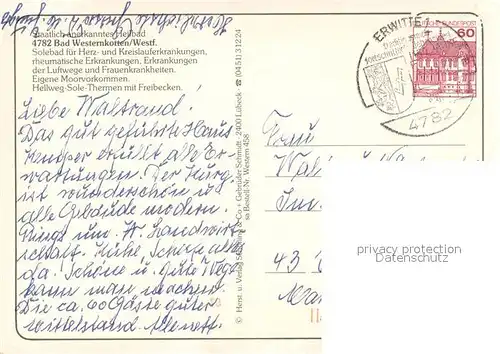 Staatlich anerkanntes Heilbad
4782 Bad Westernkotten/Westf.
Solebad für Herz- und Kreislauferkrankungen,
rheumatische Erkrankungen, Erkrankungen
der Luftwege und Frauenkrankheiten.
Eigene Moorvorkommen.
Hellweg-Sole-Thermen mit Freibecken.
Liebe Waltraud!
Das gut geführte Haus
Kemper erfüllt alle Er-
wartungen. Der Kurg
ist wunderschön u.
alle Gebäude modern.
Rings um W. Landwirt
schaft. Kühe, Schafe alles
da. Schöne u. gute Wege
kann man machen.
Die ca. 60 Gäste guter
Mittelstand. Alle nett.
© Herst. u. Verlag Schöning & Co + Gebrüder Schmidt, 2400 Lübeck · ☎ (0451) 31224
Bestell-Nr. Western 458
ERWITTE 1
DEUTSCHE BUNDESPOST
60
4782
Frau
43
privacy protection
Datenschutz